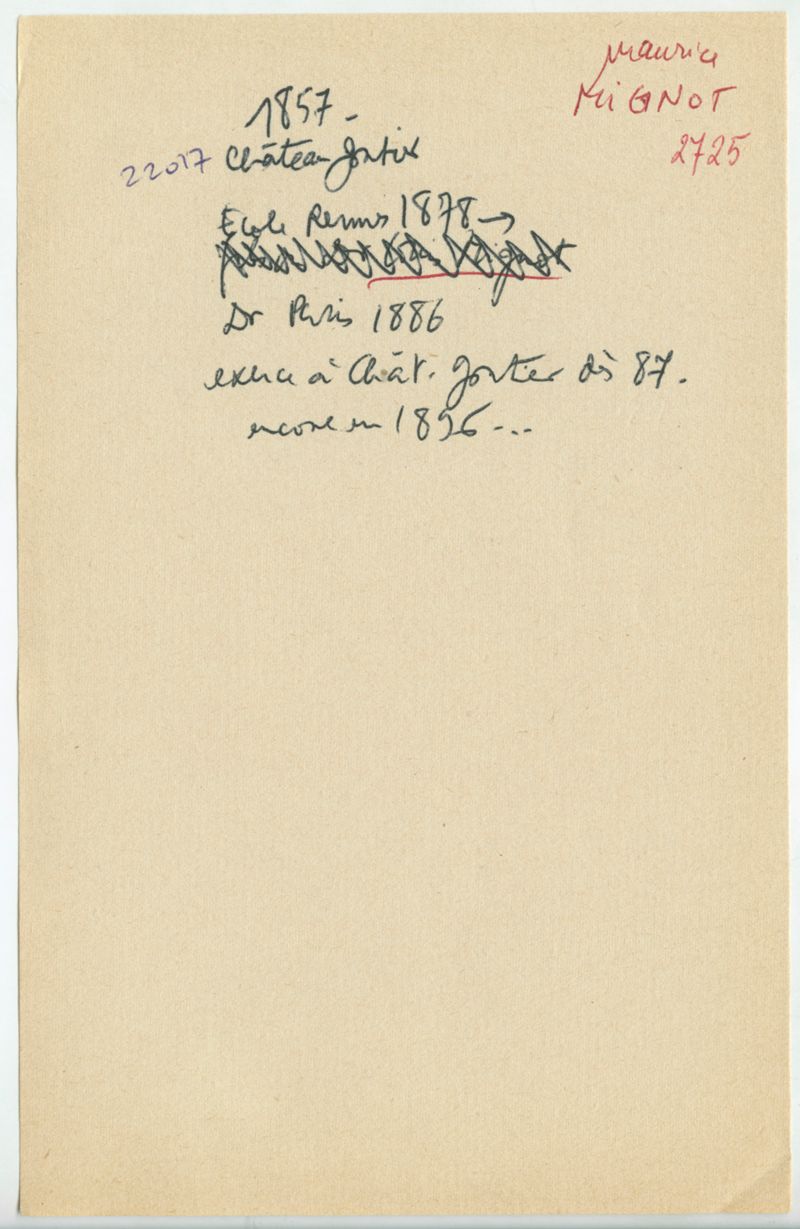 Maurice
MIGNOT
2725
1857 -
22017 Château Gontier
Ecole Rennes 1878 →
Dr Paris 1886
exerce à Chât. Gontier dès 87.
encore en 1896 ...